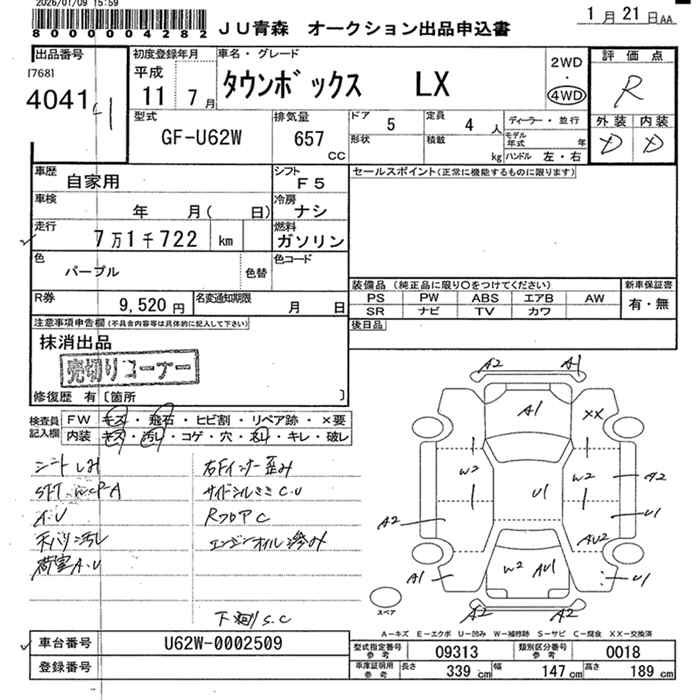 2026/01/09 15:59
8000004282
JU青森 オークション出品申込書
1月21日AA
出品番号
[768]
4041
初度登録年月
平成
11年 7月
車名・グレード
タウンボックス LX
2WD
・
4WD
評価点
R
外装 内装
D D
型式
GF-U62W
排気量
657
CC
ドア 5
定員 4人
形状
積載 kg
ディーラー・並行
モデル年式 年
ハンドル 左・右
車歴
自家用
シフト
F5
車検
年 月( 日)
冷房
ナシ
走行
7万1千722 km
燃料
ガソリン
色
パープル
色替
色コード
R券
9,520円
名変通知期限
月 日
セールスポイント(正常に機能するものに限ります)
装備品 (純正品に限り○をつけてください)
PS PW ABS エアB AW
SR ナビ TV カワ
新車保証書
有・無
後日品
注意事項申告欄(不具合内容等は具体的に記入して下さい)
抹消出品
売切りコーナー
修復歴 有〔箇所 〕
検査員記入欄
FW キズ・飛石・ヒビ割・リペア跡・×要
内装 キズ・汚レ・コゲ・穴・ネジ・キレ・破レ
シートしみ
A.U
天バリ汚レ
荷室A.U
右Fインナー歪み
サイドシルささC.U
RフロアC
エンジンオイル滲み
下廻りS.C
A2 A1
A1
XX
W2
W2
A2
U1
U1
A2
AU2
A1
W2 AU1
U1
A2 A2
スペア
A-キズ E-エクボ U-凹み W-補修跡 S-サビ C-腐食 XX-交換済
車台番号 U62W-0002509
登録番号
型式指定番号
参考
09313
類別区分番号
参考
0018
車庫証明用
参考
長さ 339cm 幅 147cm 高さ 189cm